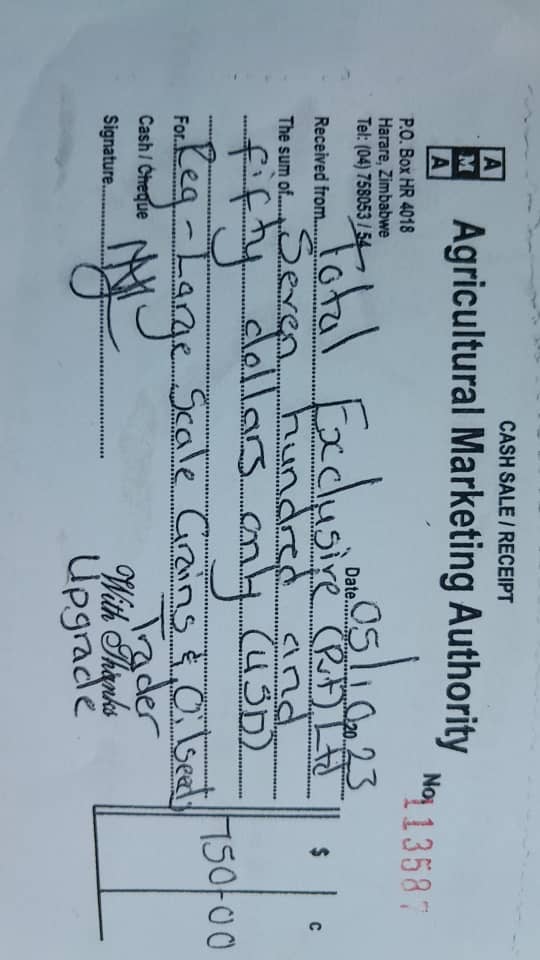 CASH SALE / RECEIPT
A M A
Agricultural Marketing Authority
No 113587
P.O. Box HR 4018
Harare, Zimbabwe
Tel: (04) 758053 / 54
Date 05/10 20 23
Received from Total Exclusive (Pvt) Ltd
The sum of Seven hundred and
fifty dollars only (USD)
For Reg - Large Scale Grains & Oilseeds
Trader
Upgrade
Cash / Cheque
Signature
With Thanks
$ c
750-00